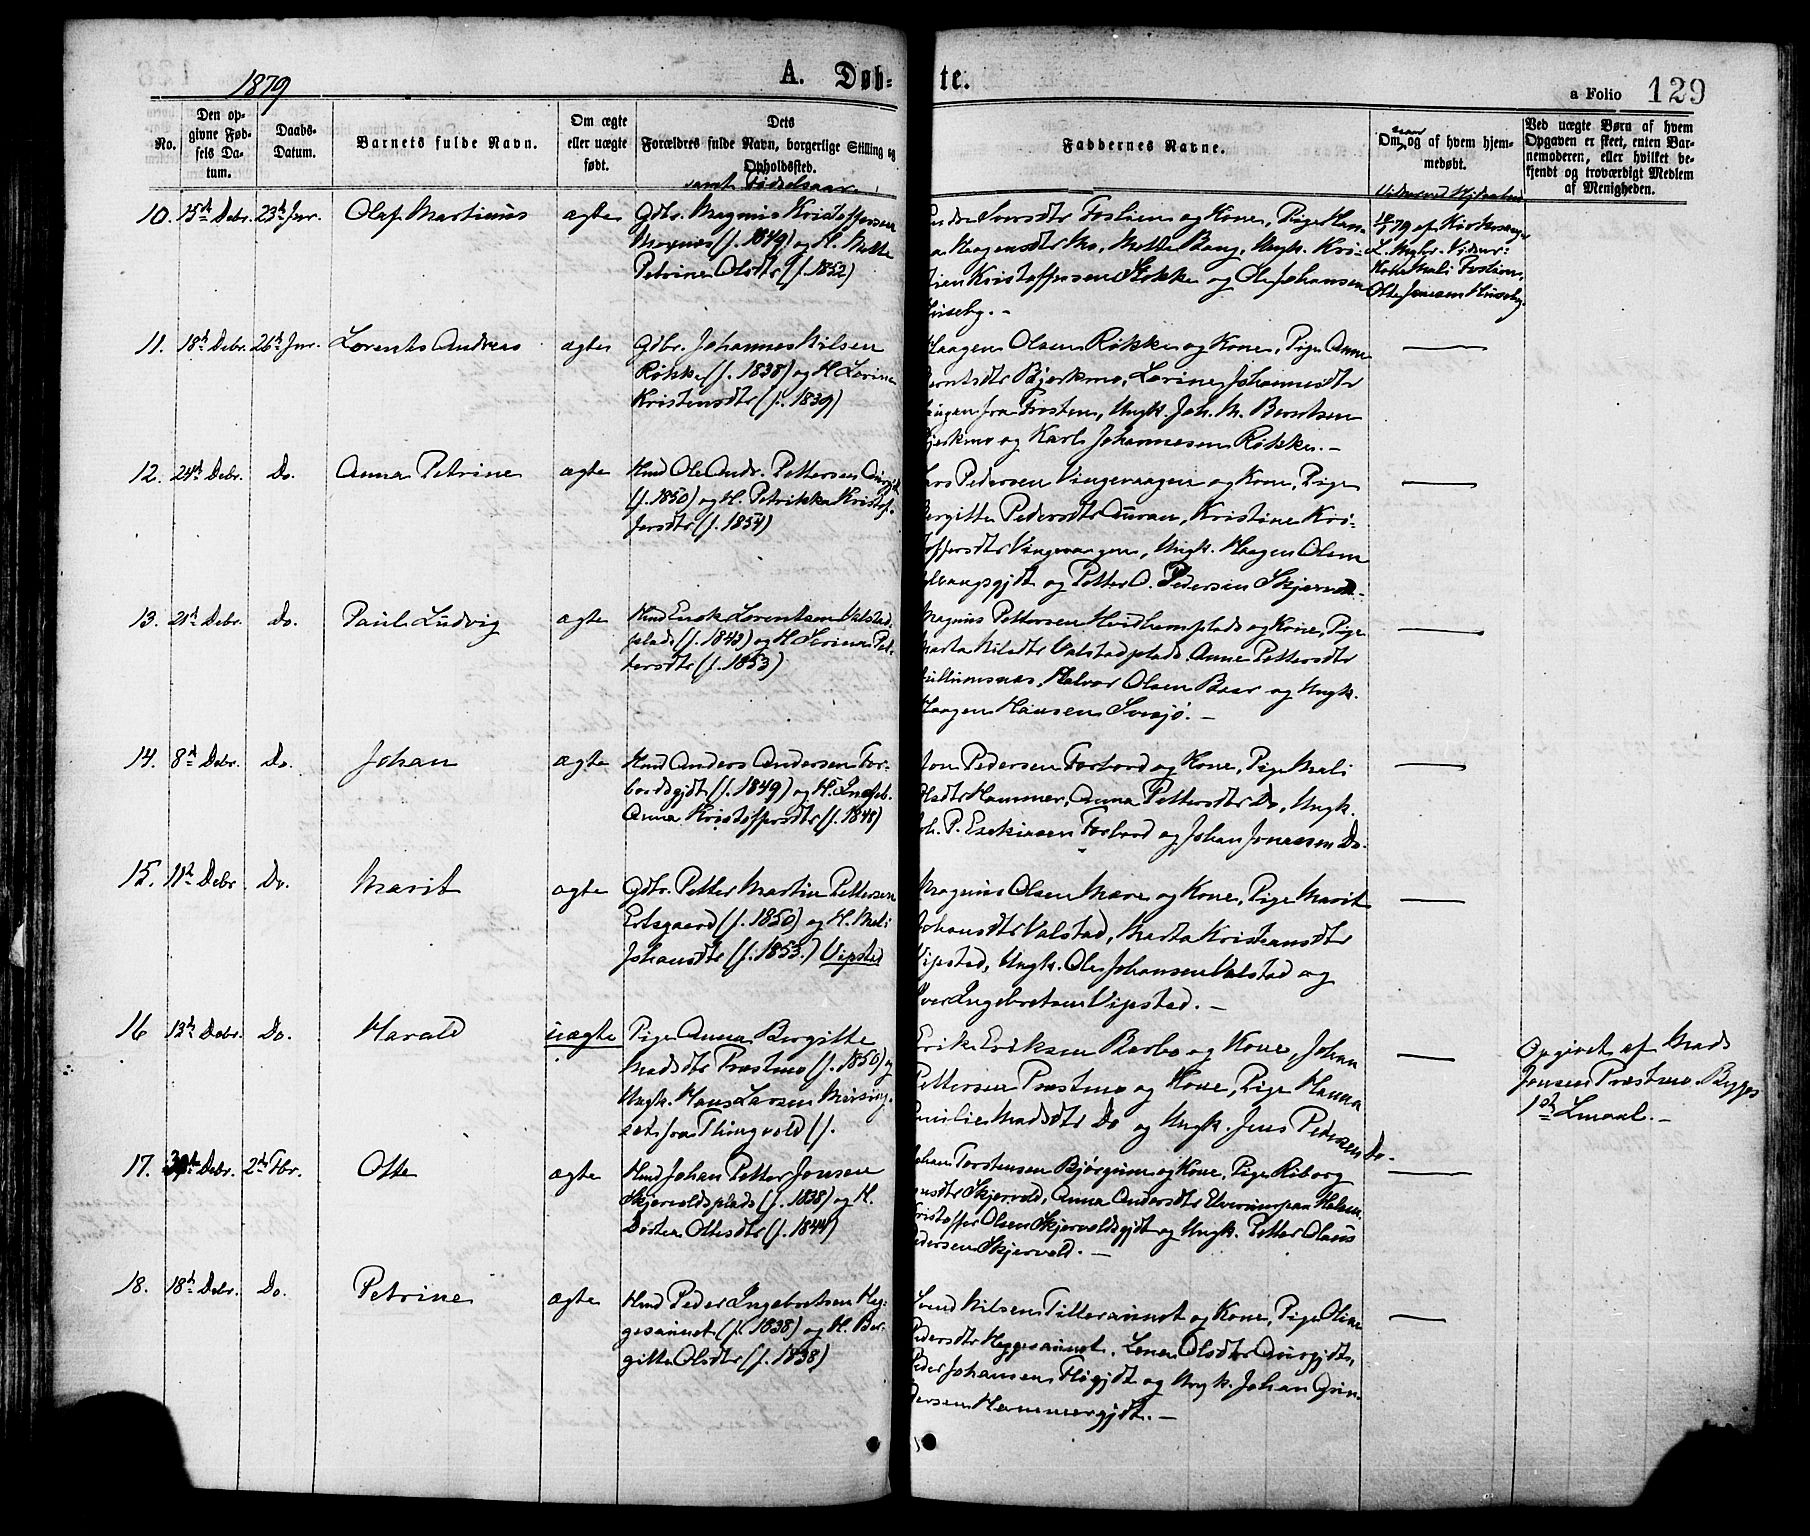 1879
A. Døb-
te.
a Folio 129
No.
Den op-
givne Fød-
sels Da-
tum.
Daabs-
Datum.
Barnets fulde Navn.
Om ægte
eller uægte
født.
Dets
Forældres fulde Navn, borgerlige Stilling og
Opholdssted.
samt Fødselsaar
Faddernes Navne.
Om og af hvem hjem-
medøbt.
Ved uægte Børn af hvem
Opgaven er skeet, enten Bar-
nemoderen, eller hvilket be-
kjendt og troværdigt Medlem
af Menigheden.
10. 15de Debr. 23de Jnr. Olaf Martinus ægte
Gdbr. Magnus Kristoffersen
Moxnes (f. 1849) og H. Mette
Petrine Olsdtr (f. 1852)
Iversdtr Fostien og Kone, Pige Han-
na Haagensdtr Mo, Mette Bang, Ungk. Kri-
stien Kristoffersen Stokke og Ole Johansen
Huseby. -
79 af Kirkesanger
Mali Fostien,
Otte Jensen Huseby.
11. 18de Debr. 26de Jnr. Lorents Andreas ægte
Gdbr. Johannes Nilsen
Røkke (f. 1838) og H Lorine
Kristensdtr (f. 1839)
Haagen Olsen Røkke og Kone, Pige Anne
Berntsdtr Bjerkmo, Lorine Johannesdtr
fra Frosten, Ungk. Joh. M. Berntsen
Bjerkmo og Karl Johannesen Røkke. -
12. 24de Debr. Do. Anna Petrine ægte
Hmd Ole Andr. Pettersen
(f. 1850) og H. Petrikka Kristof-
fersdtr (f. 1854)
Lars Pedersen Vingevaagen og Kone, Pige
Bergitte Pedersdtr Auran, Kristine Kri-
stoffersdtr Vingevaagen, Ungk. Haagen Olsen
og Petter O. Pedersen Skjervold.-
13. 21de Debr. Do. Paul Ludvig ægte
Hmd Enok Lorentsen Valstad-
plads (f. 1843) og H Serine Pet-
tersdtr (f. 1853)
Magnus Pettersen Hvidhemplads og Kone, Pige
Marta Nilsdtr Valstadplads. Anne Pettersdtr
Halvor Olsen Baar og Ungk.
Haagen Hansen Sversjø. -
14. 8de Debr. Do. Johan ægte
Hmd Anders Andersen For-
bordsgjdt (f. 1849) og H. Ingeb.
Anna Kristoffersdtr (f. 1848)
Jon Pedersen Forbord og Kone, Pige Mali
Olsdtr Hammer, Anna Pettersdtr Do, Ungk.
Joh. P. Esekiasen Forbord og Johan Jonassen Do.
15. 11te Debr. Do. Marit ægte
Gdbr. Petter Martin Pettersen
Ertsgaard (f. 1850) og H. Mali
Johansdtr (f. 1853.) Vipstad
Magnus Olsen Mære og Kone, Pige Marit
Johansdtr Valstad, Marta Kristiansdtr
Vipstad, Ungk. Ole Johansen Valstad og
Iver Ingebretsen Vipstad. -
16 13de Debr. Do. Harald uægte
Pige Anna Bergitte
Madsdtr Præstmo (f. 1850) og
Ungk. Hans Larsen Meising-
set fra Thingvold (f.
Erik Eriksen Barbo og Kone, Johan
Pettersen Præstmo og Kone, Pige Hanna
Emilie Madsdtr Do og Ungk. Jens Pedersen Do.
Opgivet af Mads
Jensen Præstmo. Begges
1ste Lmaal. -
17. 30te Debr. 2den Fbr. Otte ægte
Hmd Johan Petter Jonsen
Skjervoldsplads (f. 1838) og H.
Dorten Ottesdtr (f. 1844)
Johan Torstensen Bjørgum og Kone, Pige Riborg
Skjervold, Anna Andersdtr Elverum paa Halsen,
Kristoffer Olsen Skjervoldsgjdt og Ungk. Petter Olaus
Pedersen Skjervold. -
18. 18de Debr. Do. Petrine ægte
Hmd Peder Ingebretsen Heg-
gesaunet (f. 1838) og H. Ber-
gitte Olsdtr (f. 1838)
Svend Nilsen Tilleraunet og Kone, Pige Oline
Pedersdtr Heggesaunet, Lena Olsdtr Auregjdt,
Peder Johansen Fløgjdt og Ungk. Johan Grin-
dersen Hammergjdt. -